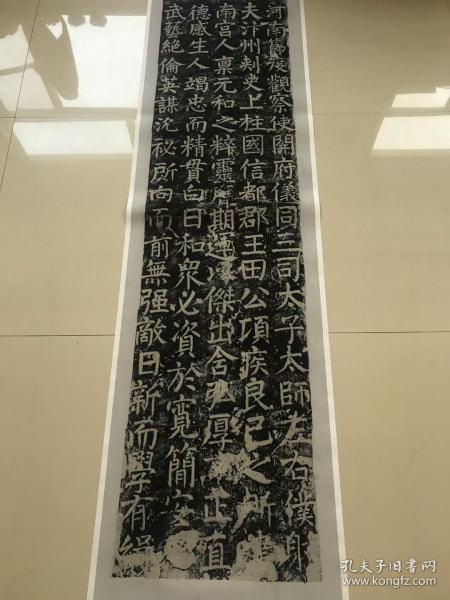 河南節度觀察使開府儀同三司太子太師左右僕射
夫汴州刺史上柱國信都郡王田公頃疾良已之所建
南宮人稟元和之粹靈膺期運傑出含弘厚正直
德感生人竭忠而精貫白日和衆必資於寬簡安
武藝絕倫英謀沈祕所向而前無强敵日新而學有緝
孔夫子旧书网
www.kongfz.com